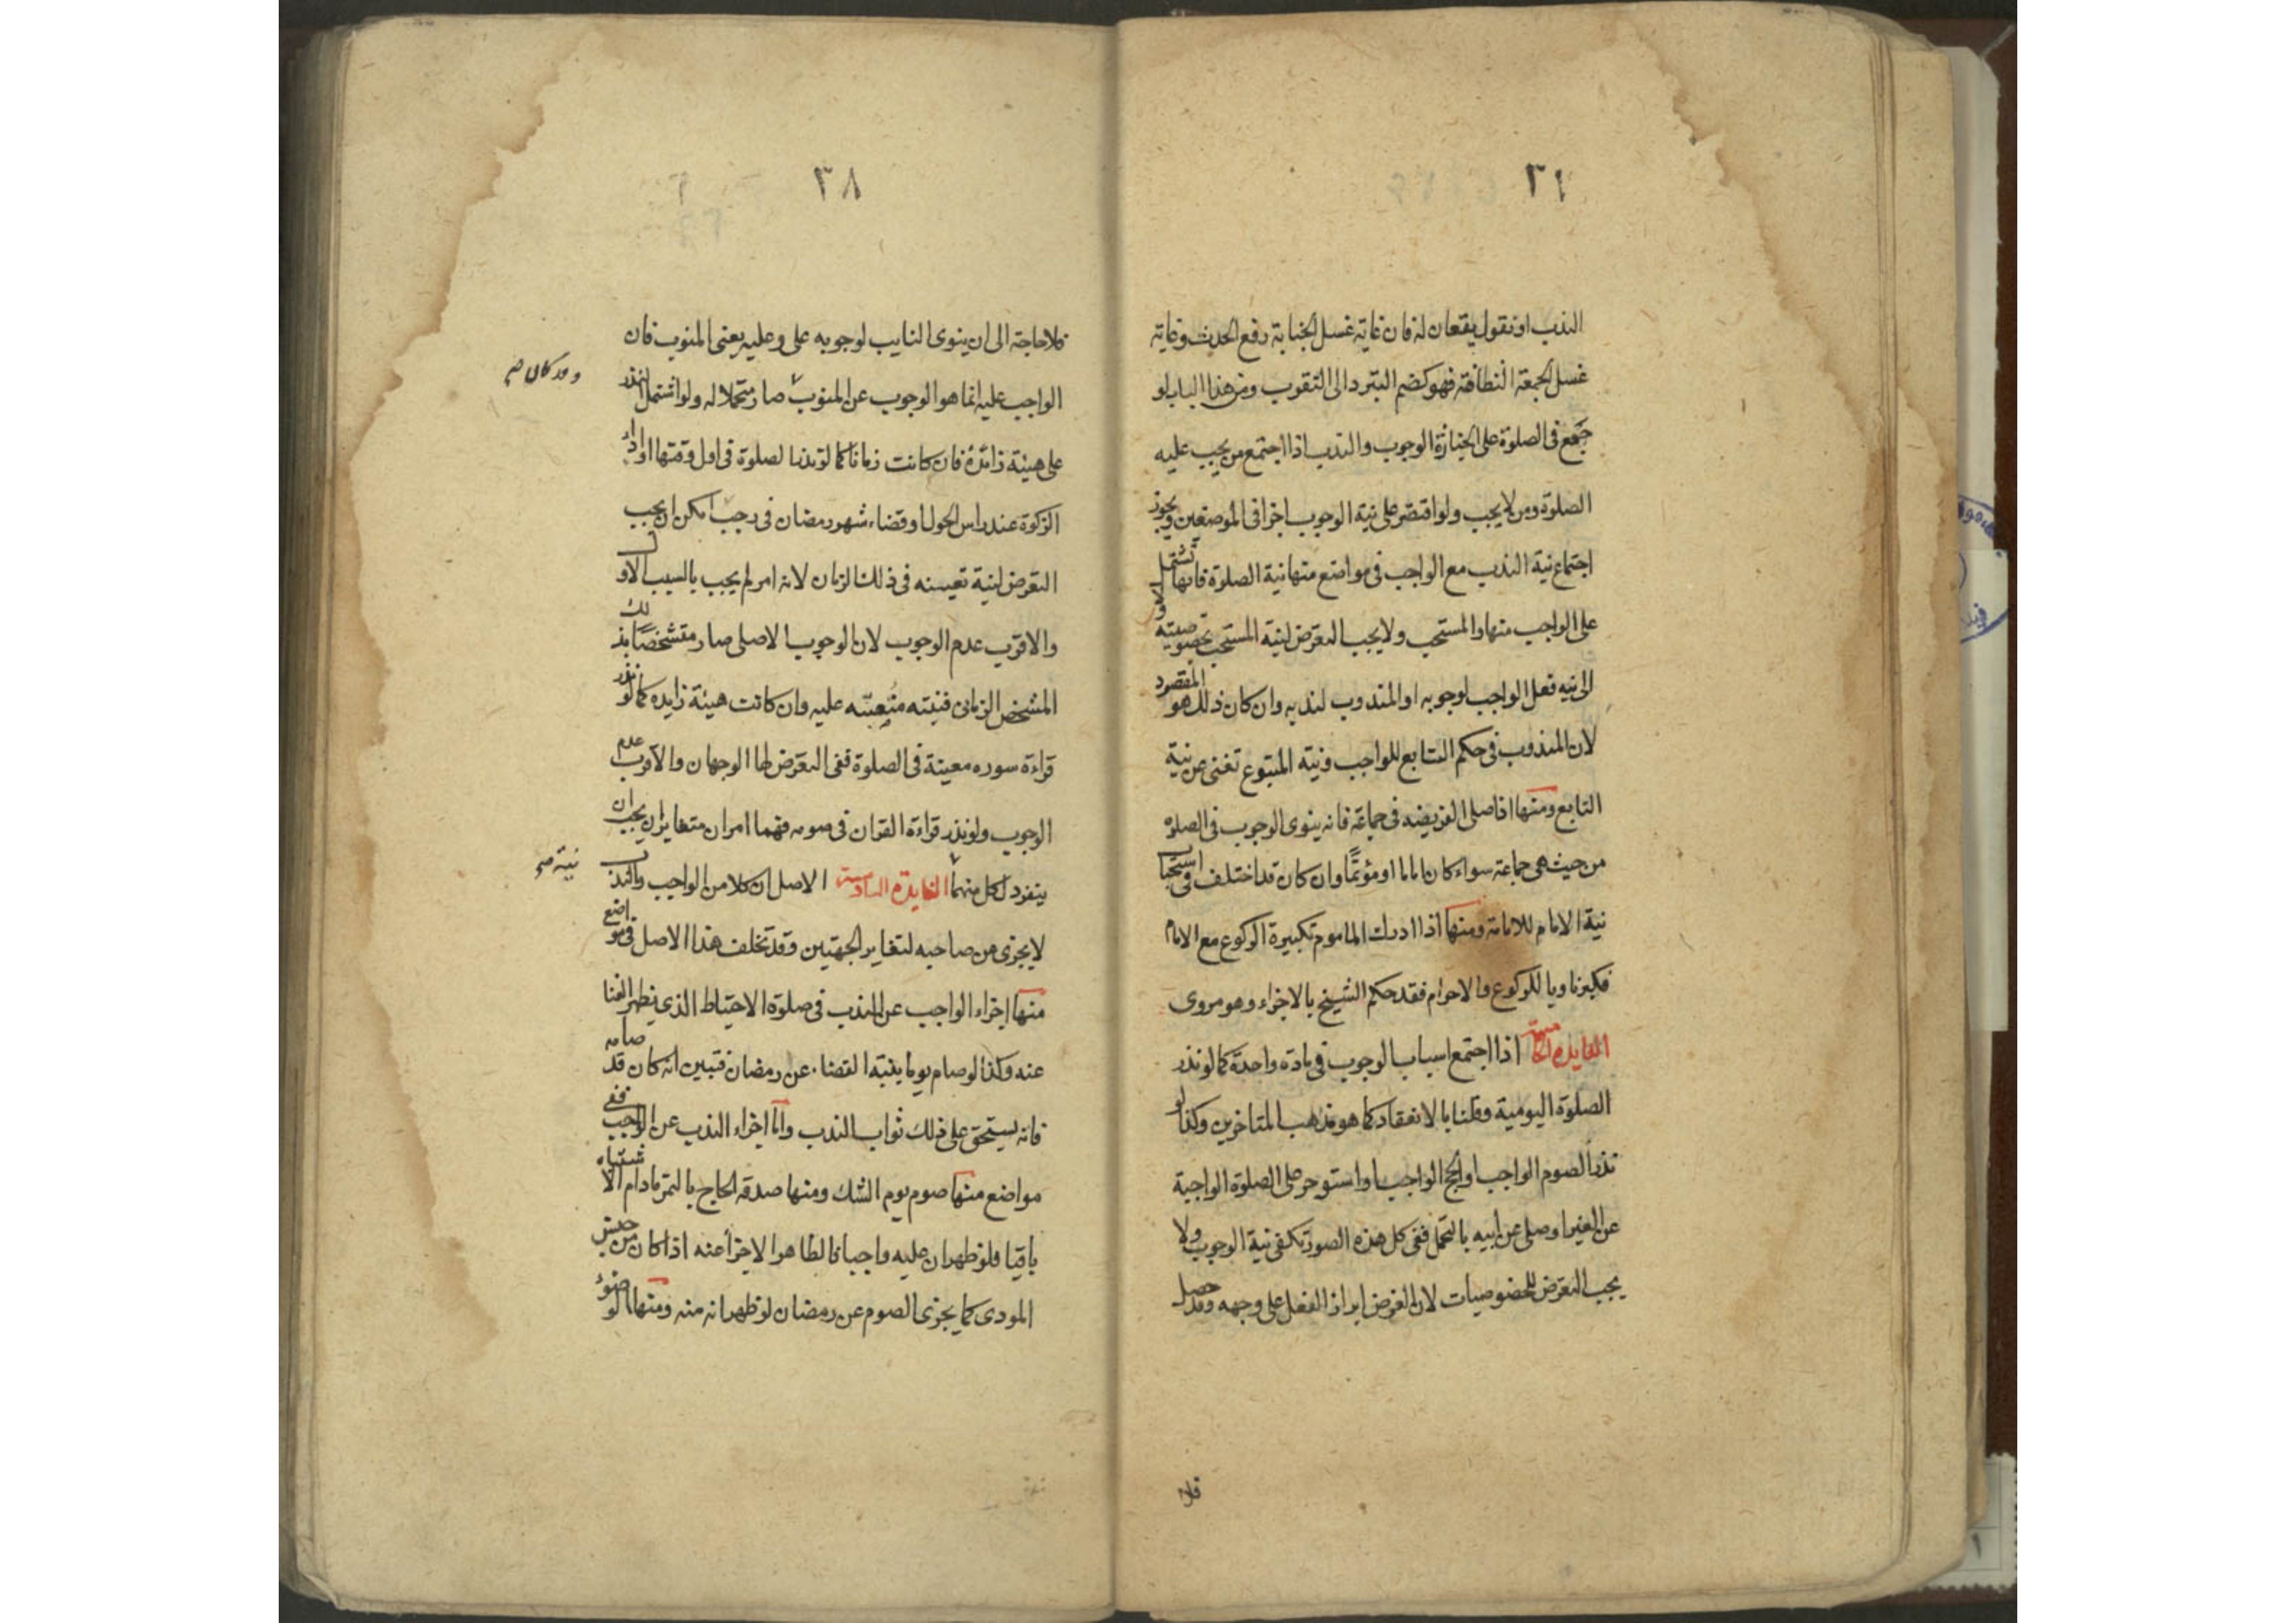 ٣٦
الندب او نقول يقعان له فان غاية غسل الجنابة رفع الحدث وغاية
غسل الجمعة النظافة فهو كضم التبرد الى التقرب ومن هذا الباب لو
جمع فى الصلوة على الجنازة الوجوب والندب اذا اجتمع من يجب عليه
الصلوة ومن لا يجب ولو اقتصر على نية الوجوب اجزا فى الموضعين ويجوز
اجتماع نية الندب مع الواجب فى مواضع منها نية الصلوة فانها تشتمل
على الواجب منها والمستحب ولا يجب التعرض لنية المستحب بخصوصيته
الى نيه فعل الواجب لوجوبه او المندوب لندبه وان كان ذلك هو المقصود
لان المندوب فى حكم التابع للواجب ونية المتبوع تغنى عن نية
التابع ومنها اذا صلى الفريضه فى جماعة فانه ينوى الوجوب فى الصلوه
من حيث هى جماعة سواء كان اماما او مؤتمًّا وان كان قد اختلف فى استحبا
نية الامام للامامة ومنها اذا ادرك الماموم تكبيرة الركوع مع الامام
فكبر ناويا للركوع والاحرام فقد حكم الشيخ بالاجزاء وهو مروى
الفايدة الخامسة اذا اجتمع اسباب الوجوب فى مادة واحدة كما لو نذر
الصلوة اليومية وقلنا بالانعقاد كما هو مذهب المتاخرين وكذا لو
نذر الصوم الواجب او الحج الواجب او استوجر على الصلوة الواجبة
عن الغير او صلى عن ابيه بالتحمل ففى كل هذه الصور تكفى نية الوجوب ولا
يجب التعرض للخصوصيات لان الغرض ابراز الفعل على وجهه وقد حصل
فلا
٣٨
فلا حاجة الى ان ينوى النايب لوجوبه على وعليه يعنى المنوب فان
الواجب عليه انما هو الوجوب عن المنوب صار متحملا له ولو اشتمل النذر
وقد كان صح
على هيئة زائدة فان كانت زمانا كما لو نذر الصلوة فى اول وقتها او اداء
الزكوة عند راس الحول او قضاء شهر رمضان فى رجب امكن ان يجب
التعرض لنية تعيينه فى ذلك الزمان لانه امر لم يجب بالسبب الاول
والاقرب عدم الوجوب لان الوجوب الاصلى صار متشخصًا بذلك
المشخص الزمانى فنيته متعينة عليه وان كانت هيئة زايده كما لو نذر
قراءة سوره معينة فى الصلوة ففى التعرض لها الوجهان والاقرب عدم
الوجوب ولو نذر قراءة القران فى صومه فهما امران متغايران يجب ان
ينفرد لكل منهما الفايدة السادسة الاصل ان كلا من الواجب والندب
نية صح
لا يجزى عن صاحبه لتغاير الجهتين وقد تخلف هذا الاصل فى مواضع
منها اجزاء الواجب عن الندب فى صلوة الاحتياط الذى يظهر الغنا
عنه وكذا لو صام يوما بنية القضاء عن رمضان فتبين انه كان قد صامه
فانه يستحق على ذلك ثواب الندب واما اجزاء الندب عن الواجب ففى
مواضع منها صوم يوم الشك ومنها صدقه الحاج بالتمر مادام الاشتباه
باقيا فلو ظهر ان عليه واجبا فالظاهر الاجزا عنه اذا كان من جنس
المودى كما يجزى الصوم عن رمضان لو ظهر انه منه ومنها الوضوء